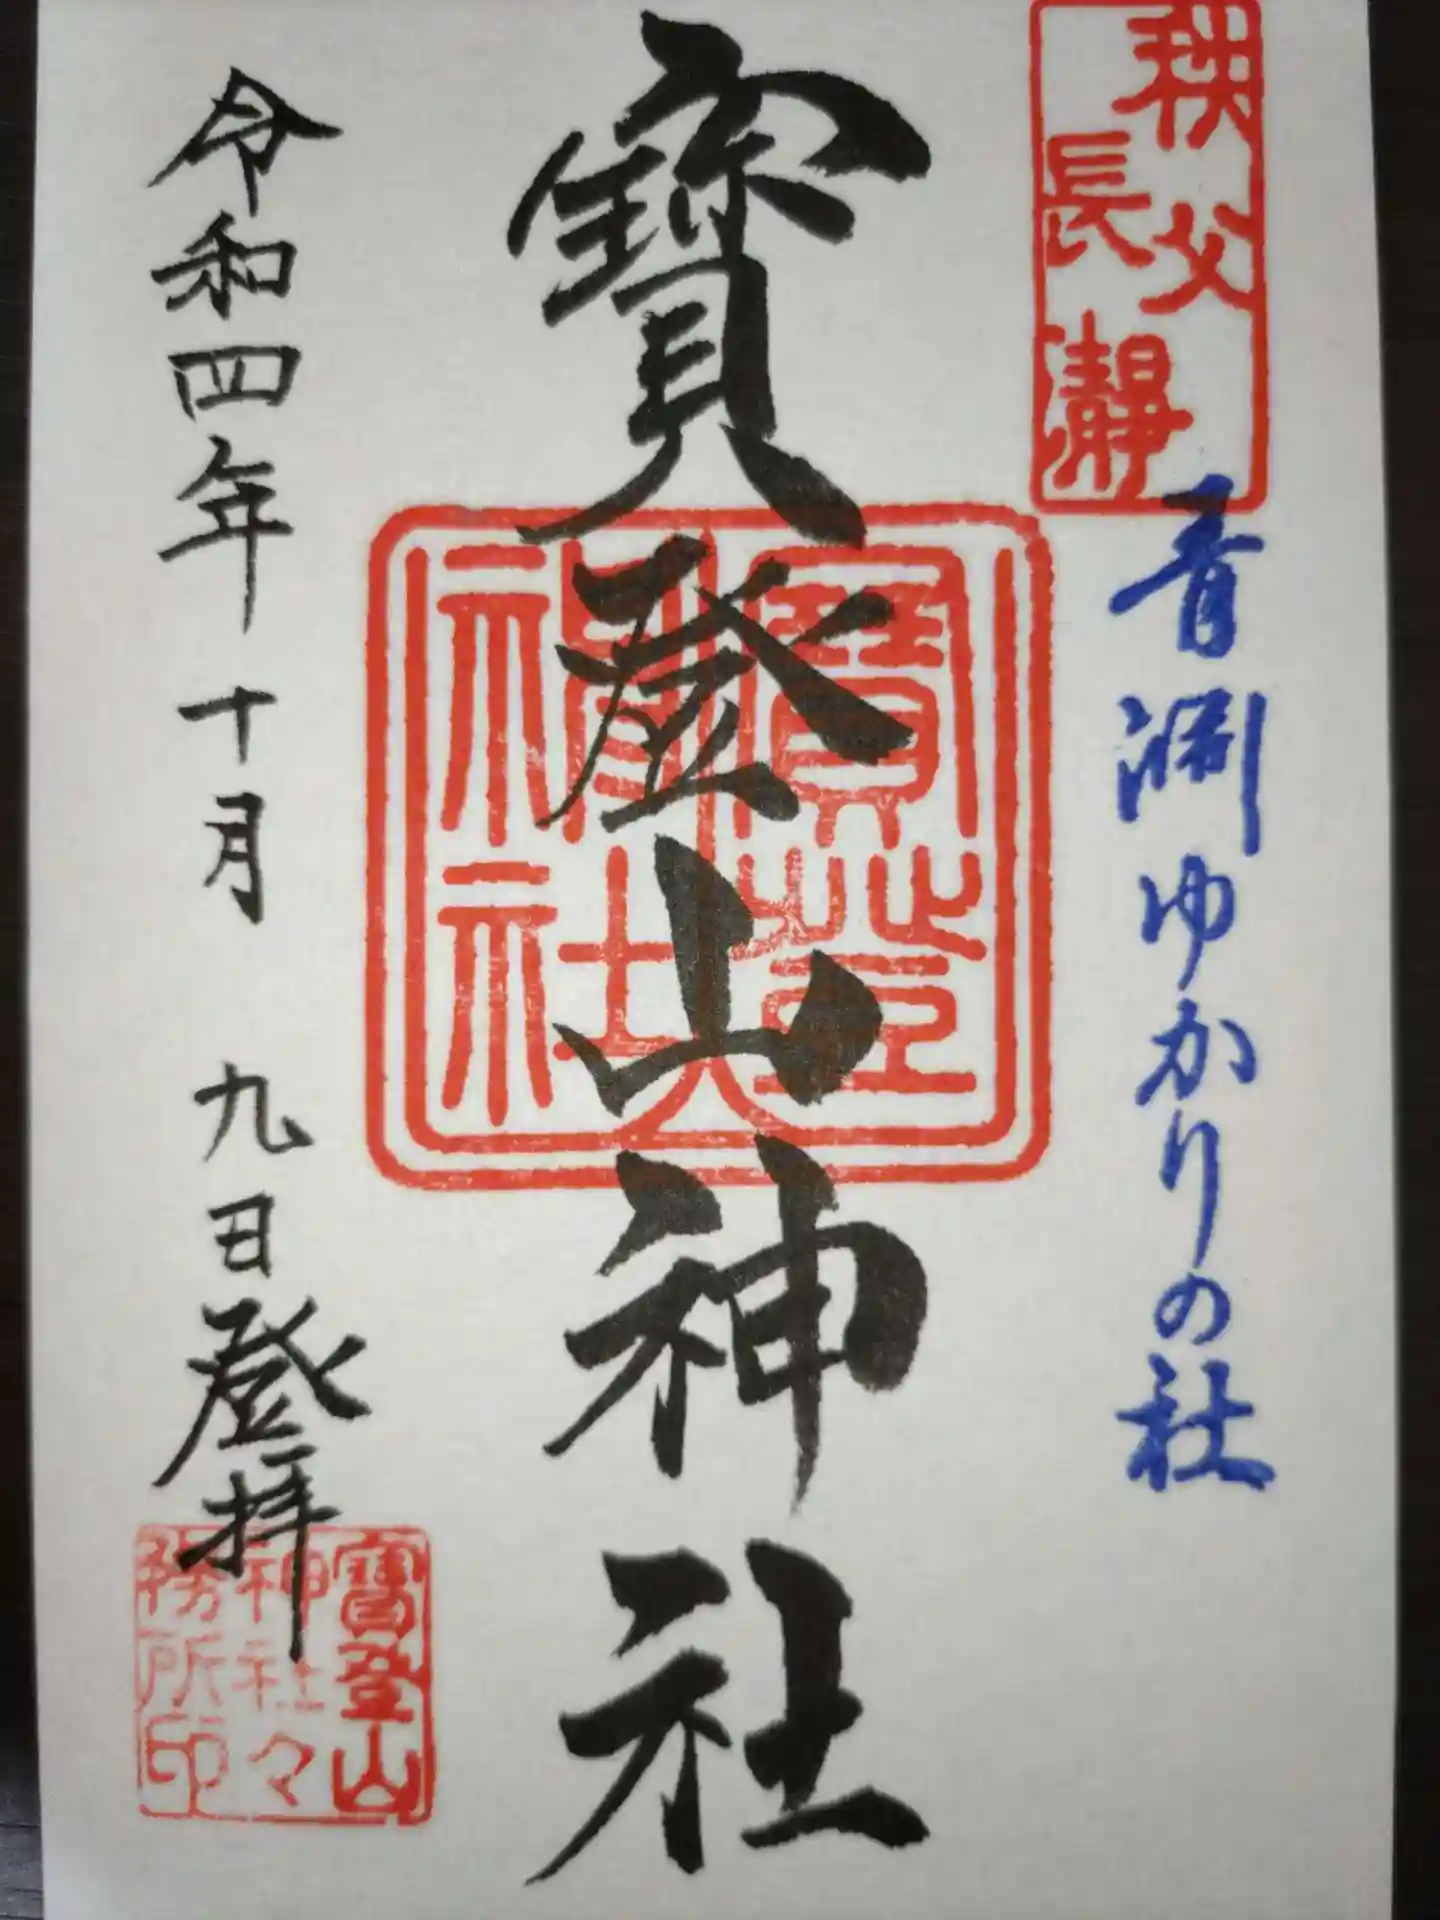 秩父
長瀞
青淵ゆかりの社
寳登山神社
令和四年十月 九日登拝
寳登山
神社々
務所印